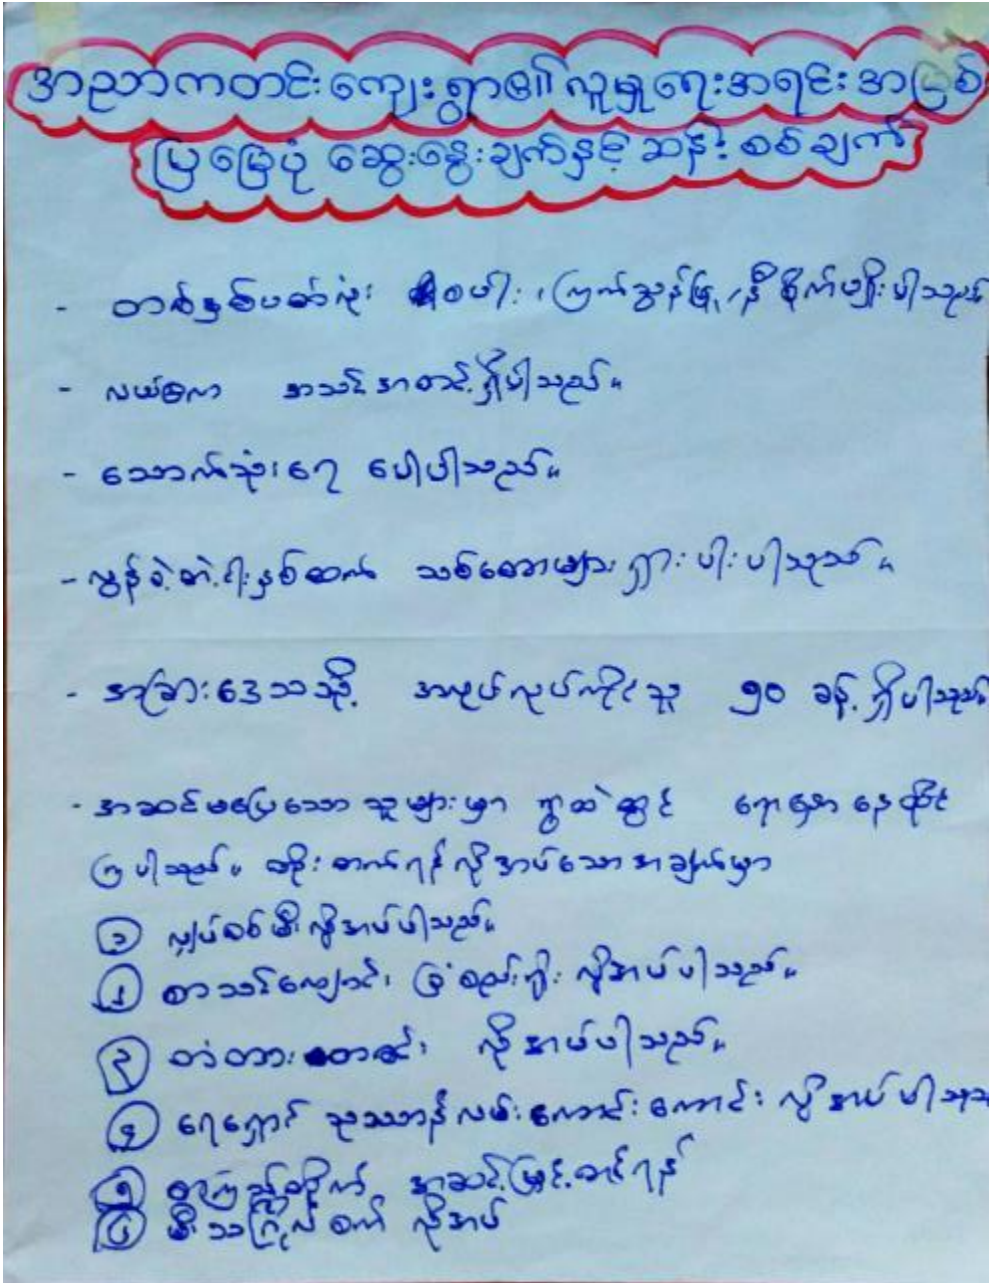 အညာကတင်းကျေးရွာ၏ လူမှုရေးအရင်းအမြစ်
ပြမြေပုံ ဆွေးနွေးချက်နှင့် ဆန်းစစ်ချက်
- တစ်နှစ်ပတ်လုံး စပါး၊ ကြက်သွန်ဖြူ၊ နီ စိုက်ပျိုးပါသည်
- လယ်မြေက အသင့်အတင့်ရှိပါသည်။
- သောက်သုံးရေ ပေါပါသည်။
- လွန်ခဲ့တဲ့ ငါးနှစ်ထက် သစ်တောများ ရှားပါးပါသည်။
- အခြားဒေသသို့ အလုပ်လုပ်ကိုင်သူ ၅၀ ခန့် ရှိပါသည်
- အဆင်မပြေသောသူများမှာ ရွာထဲတွင် ရောနှောနေထိုင်
ကြပါသည်။ တိုးတက်ရန်လိုအပ်သောအချက်မှာ
၁ လျှပ်စစ်မီးလိုအပ်ပါသည်။
၂ စာသင်ကျောင်း ခြံစည်းရိုး လိုအပ်ပါသည်။
၃ တံတား လိုအပ်ပါသည်။
၄ ရေရှောင် သုဿာန်လမ်းကောင်းကောင်း လိုအပ်ပါသ
၅ စာကြည့်တိုက် အဆင့်မြှင့်တင်ရန်
၆ မီးသဂြိုလ်စက် လိုအပ်